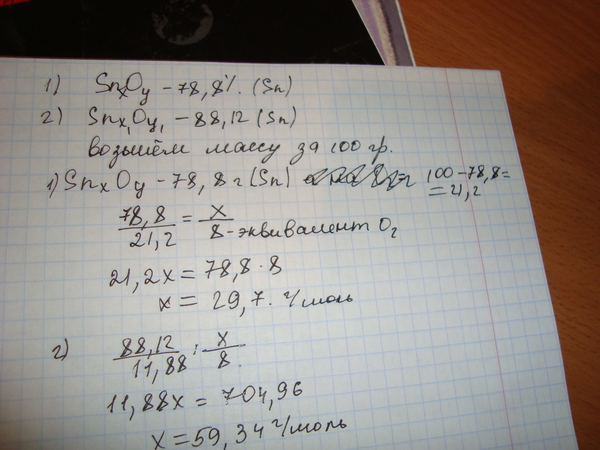 1) SnxOy - 78,8%. (Sn)
2) Snx₁Oy₁ - 88,12 (Sn)
возьмём массу за 100 гр.
1) SnxOy - 78,8г (Sn) 100-78,8=
=21,2
78,8/21,2 = x/8 - эквивалент O₂
21,2x = 78,8·8
x = 29,7. г/моль
2) 88,12/11,88 : x/8.
11,88x = 704,96
x = 59,34 г/моль